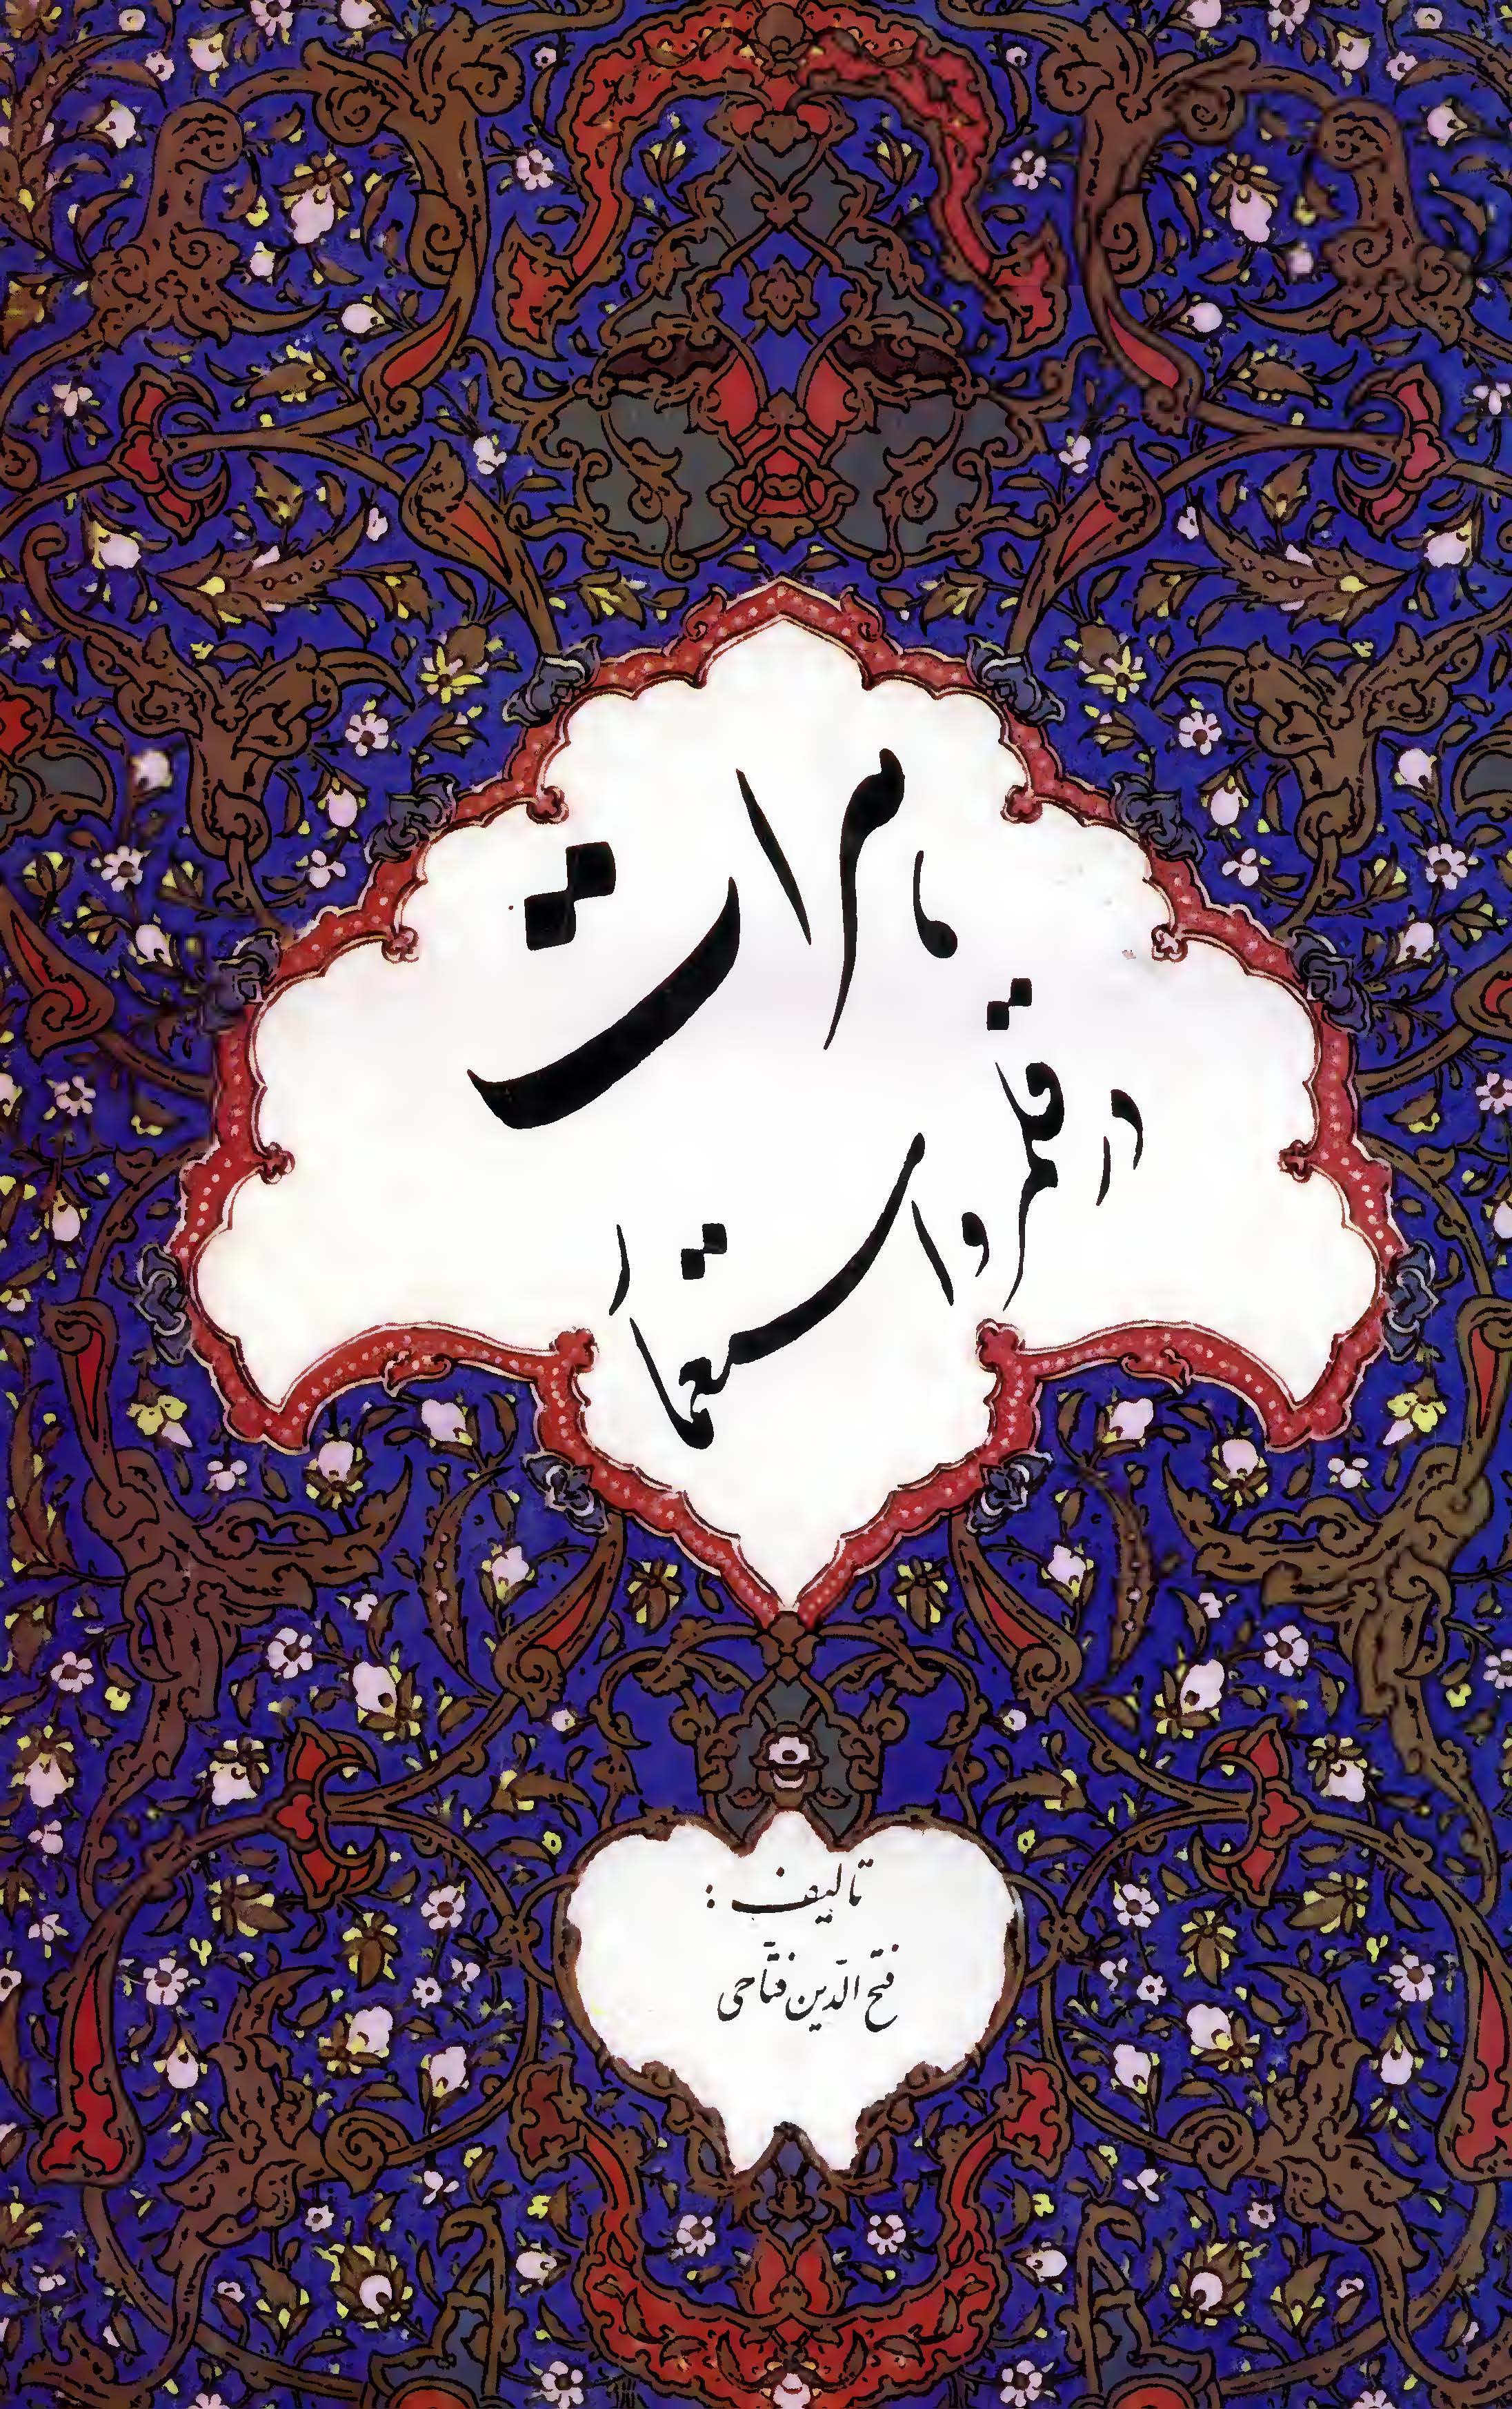 هرات
در قلمرو استعمار
تألیف :
فتح الدّین فتّاحی